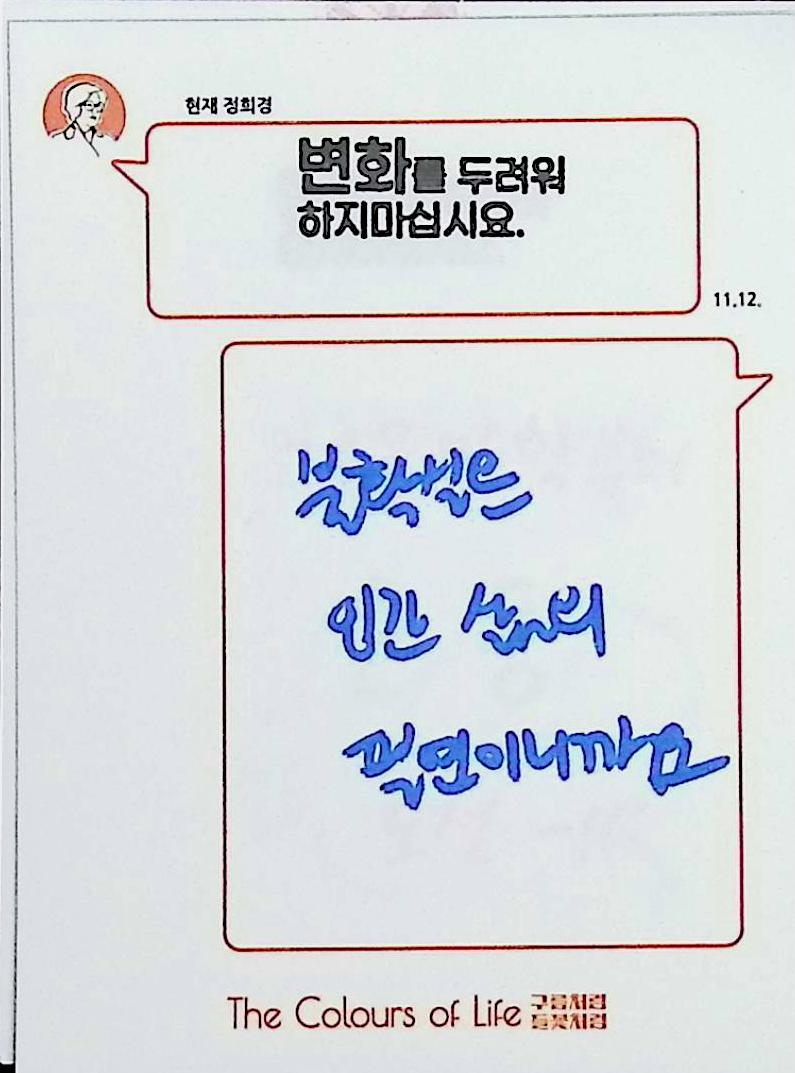 현재 정희경
변화를 두려워
하지마십시요.
11.12.
불확실은
인간 삶의
필연이니까요
The Colours of Life 구름처럼
들꽃처럼